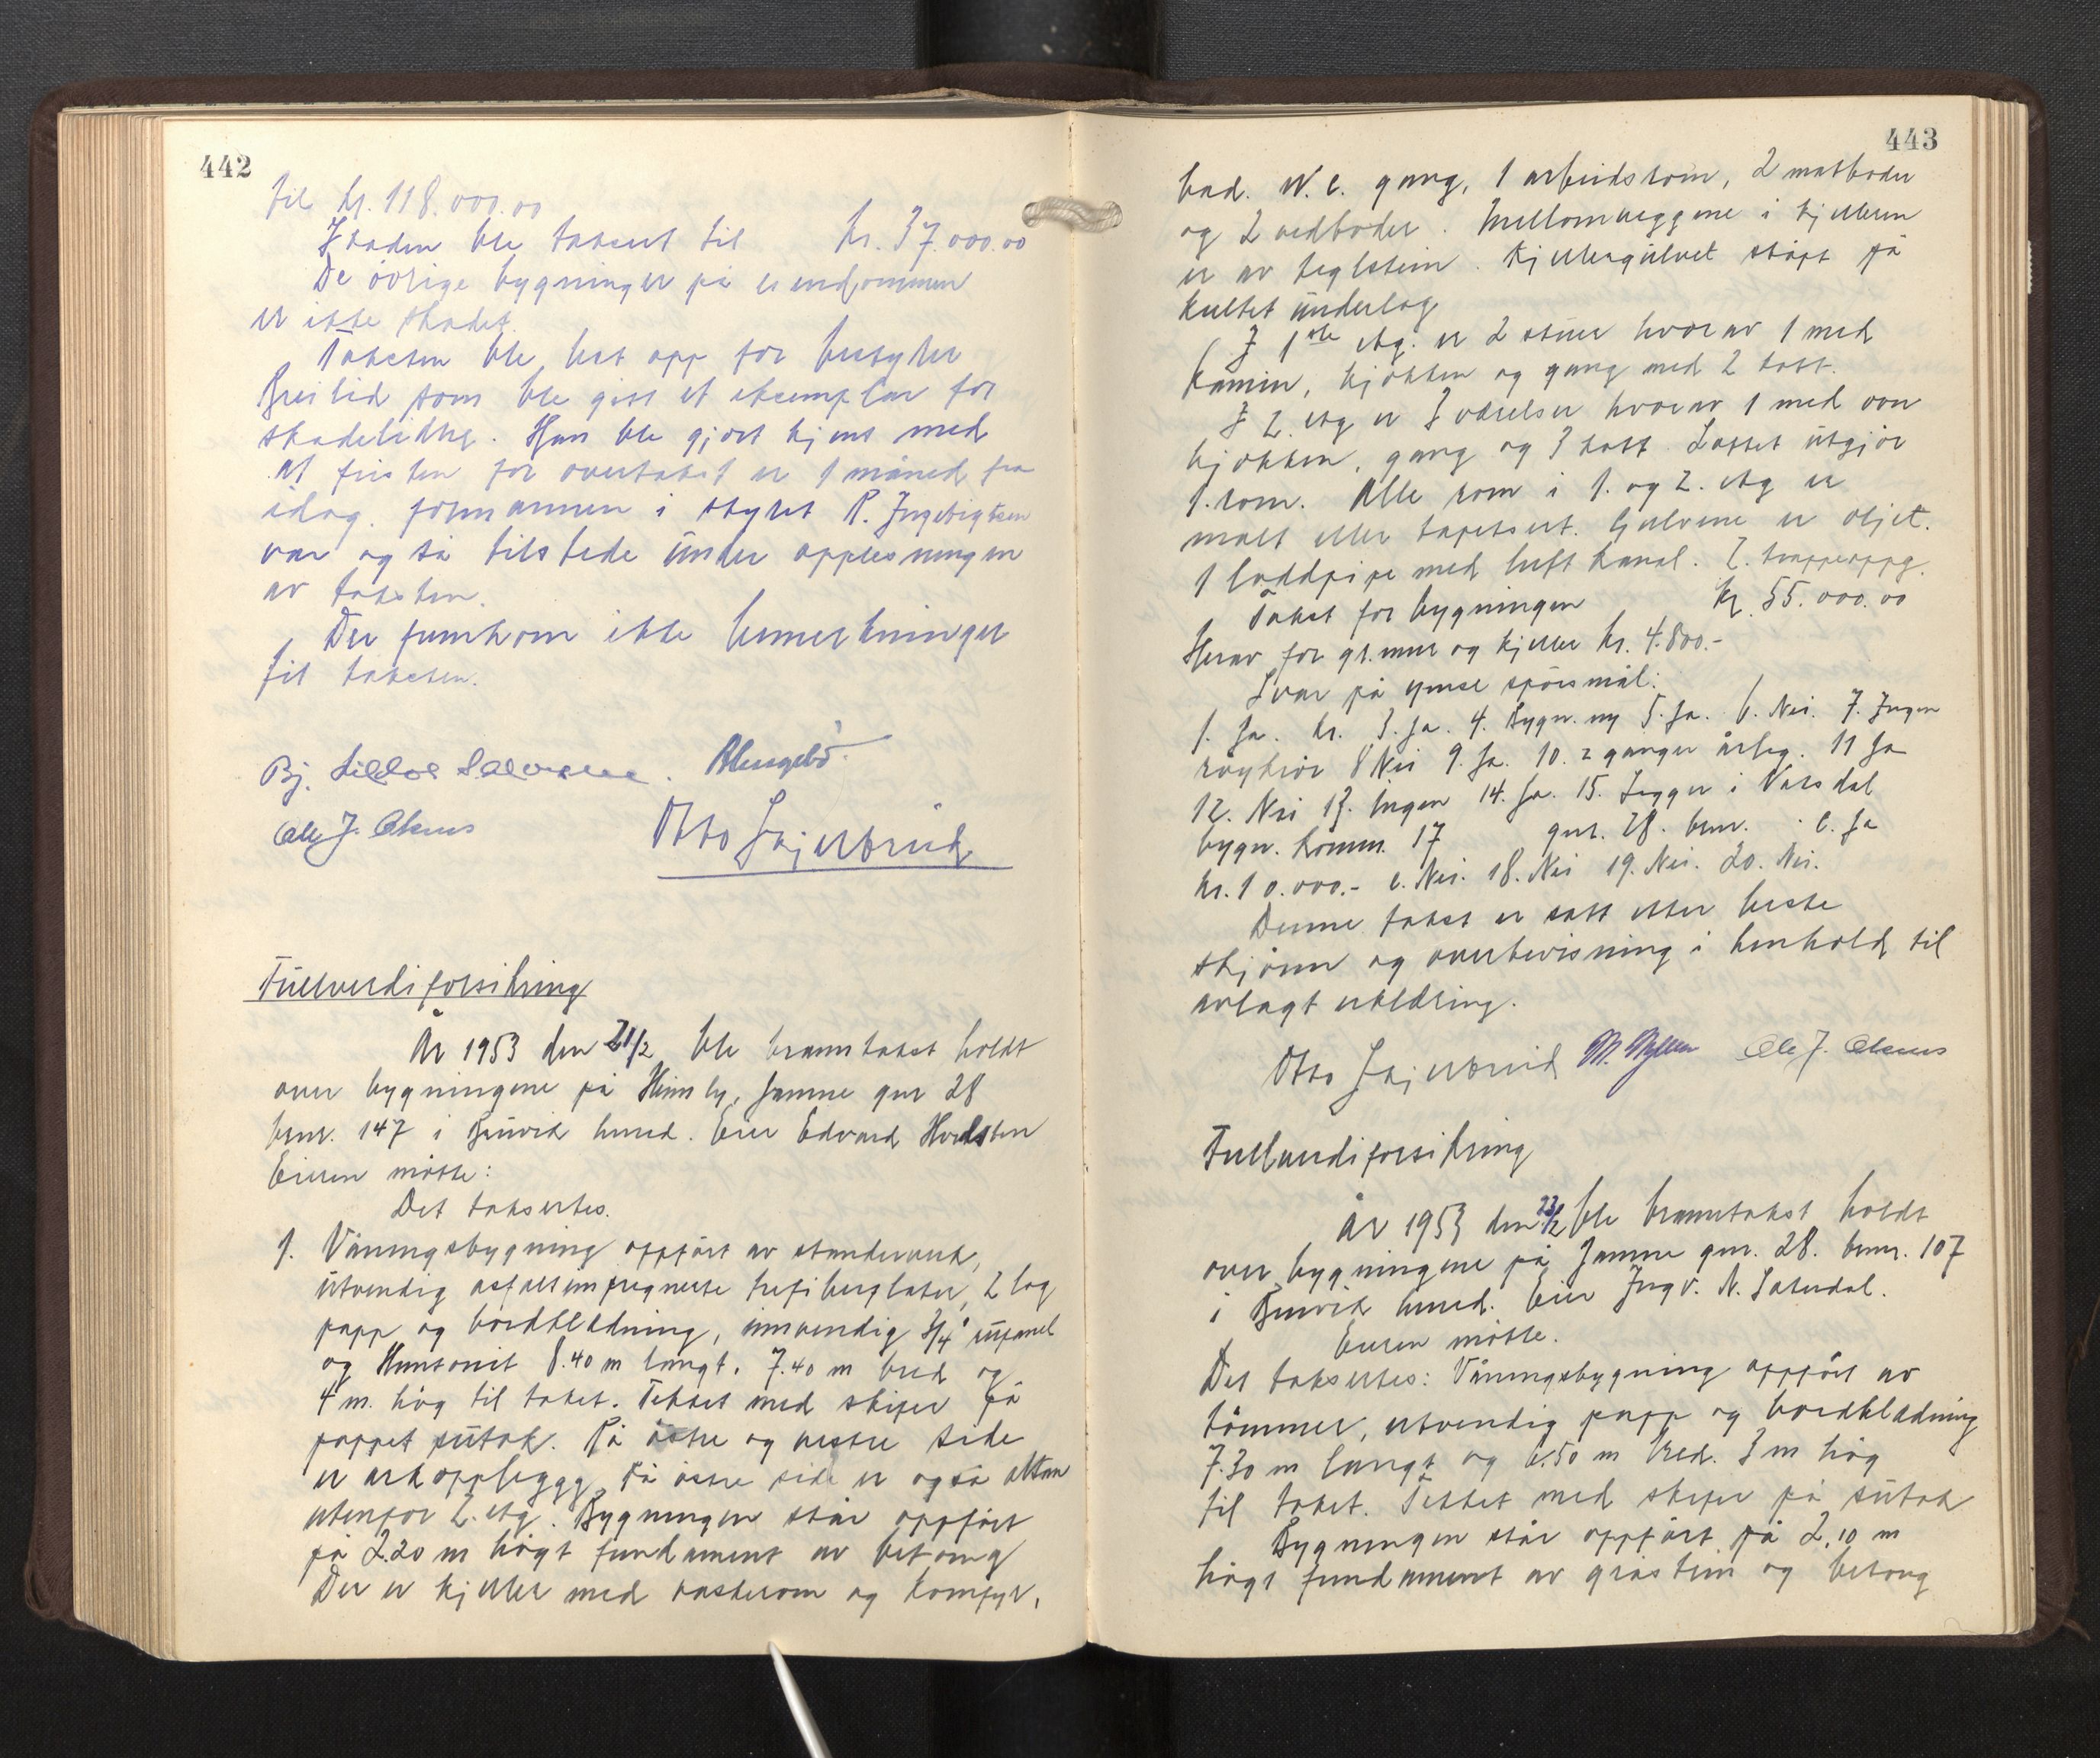 442
til kr. 118.000.00
Skaden ble taksert til kr. 37.000.00
De övrige bygninger på eiendommen
er ikke skadet.
Taksten ble lest opp for bestyrer
Breilid som ble gitt et eksemplar for
skadelidte. Han ble gjort kjent med
at fristen for overtakst er 1 måned fra
idag. formannen i styret P. Ingebrigtsen
var også tilstede under opplesningen
av taksten.
Der fremkom ikke bemerkninger
til taksten.
Ole J. Aknes
Otto Skjerbruid
Fullverdiforsikring
År 1953 den 21/2 ble branntakst holdt
over bygningene på Heimly, Jamne gnr 28
bnr. 147 i Bruvik herred. Eier Edvard
Eieren mötte:
Det taksertes.
1. Våningsbygning oppfört av standerverk,
utvendig asfaltimpregnerte trefiberplater, 2 lag
papp og bordkledning, innvendig 3/4" rupanel
og Huntonit 8.40 m langt. 7.40 m bred og
4 m. høg til taket. Tekket med skifer på
pappet sutak. På östre og vestre side
er arkopplegg. På östre side er også altan
utenfor 2. etg. Bygningen står oppfört
på 2.20 m högt fundament av betong
Der er kjeller med vaskerom og komfyr,
443
bad. W.C. gang, 1 arbeidsrom, 2 matboder
og 2 vedboder. Mellomveggene i kjelleren
er av teglstein. Kjellergulvet støpt på
kultet underlag
I 1ste etg. er 2 stuer hvorav 1 med
kamin, kjökken og gang med 2 kott.
I 2. etg er 3 værelser hvorav 1 med ovn
kjökken, gang og 3 kott. Loftet utgjör
1. rom. Alle rom i 1. og 2. etg er
malt eller tapetsert. Gulvene er oljet.
1 loddpipe med luftkanal. 2. trappeoppg.
Takst for bygningen kr. 55.000.00
Herav for gr.mur og kjeller kr. 4.800.-
Svar på ymse spörsmål:
1. Ja. kr. 3. Ja. 4. Bygn. ny 5. Ja. 6. Nei. 7. Ingen
röykrör 8 Nei 9. Ja. 10. 2 ganger årleg. 11 Ja
12. Nei 13. Ingen 14. Ja. 15. Ligger i Vaksdal
bygn. komm. 17 gnr. 28. bnr. c. Ja
kr. 10.000.- e. Nei. 18. Nei 19. Nei. 20. Nei.
Denne takst er satt etter beste
skjönn og overbevisning i henhold til
avlagt erklæring.
Otto Skjerbruid M. Ole J. Aknes
Fullverdiforsikring
År 1953 den 23/2 ble branntakst holdt
over bygningene på Jamne gnr. 28. bnr. 107
i Bruvik herred. Eier Ingv. N.
Eieren mötte.
Det taksertes: Våningsbygning oppfört av
tömmer, utvendig papp og bordkledning
7.30 m langt og 6.50 m bred. 3 m høg
til taket. Tekket med skifer på sutak
Bygningen står oppfört på 2.10 m
högt fundament av gråstein og betong